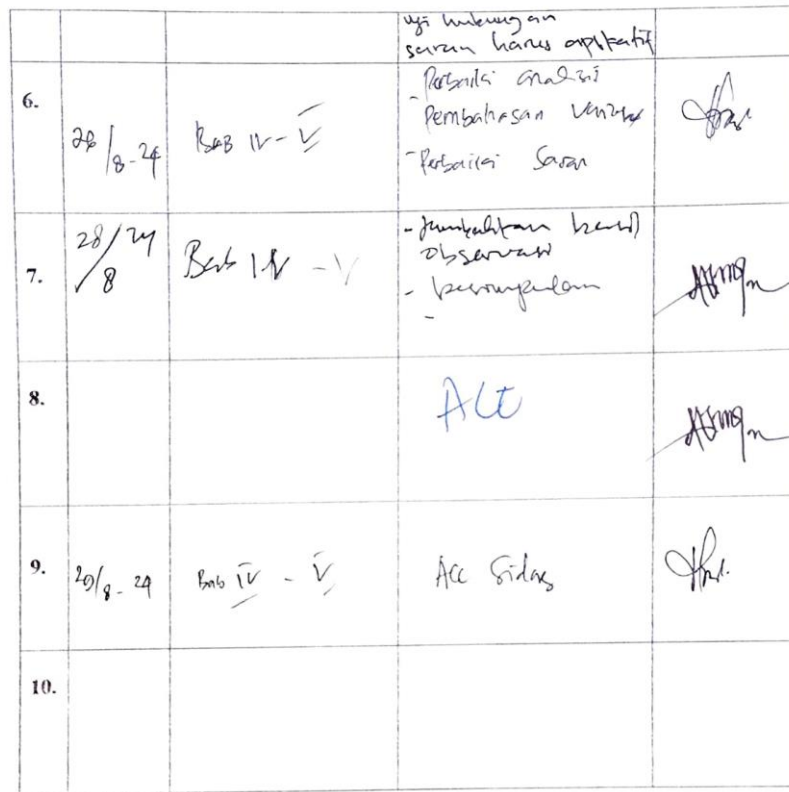 uji hubungan
saran harus aplikatif
6.
26/8-24
Bab IV - V
- Perbaiki analisi
Pembahasan
- Perbaiki Saran
7.
28/24
/8
Bab IV - V
- Jumlahkan hasil
observasi
- kesimpulan
-
8.
ACC
9.
29/8-24
Bab IV - V
Acc Sidang
10.